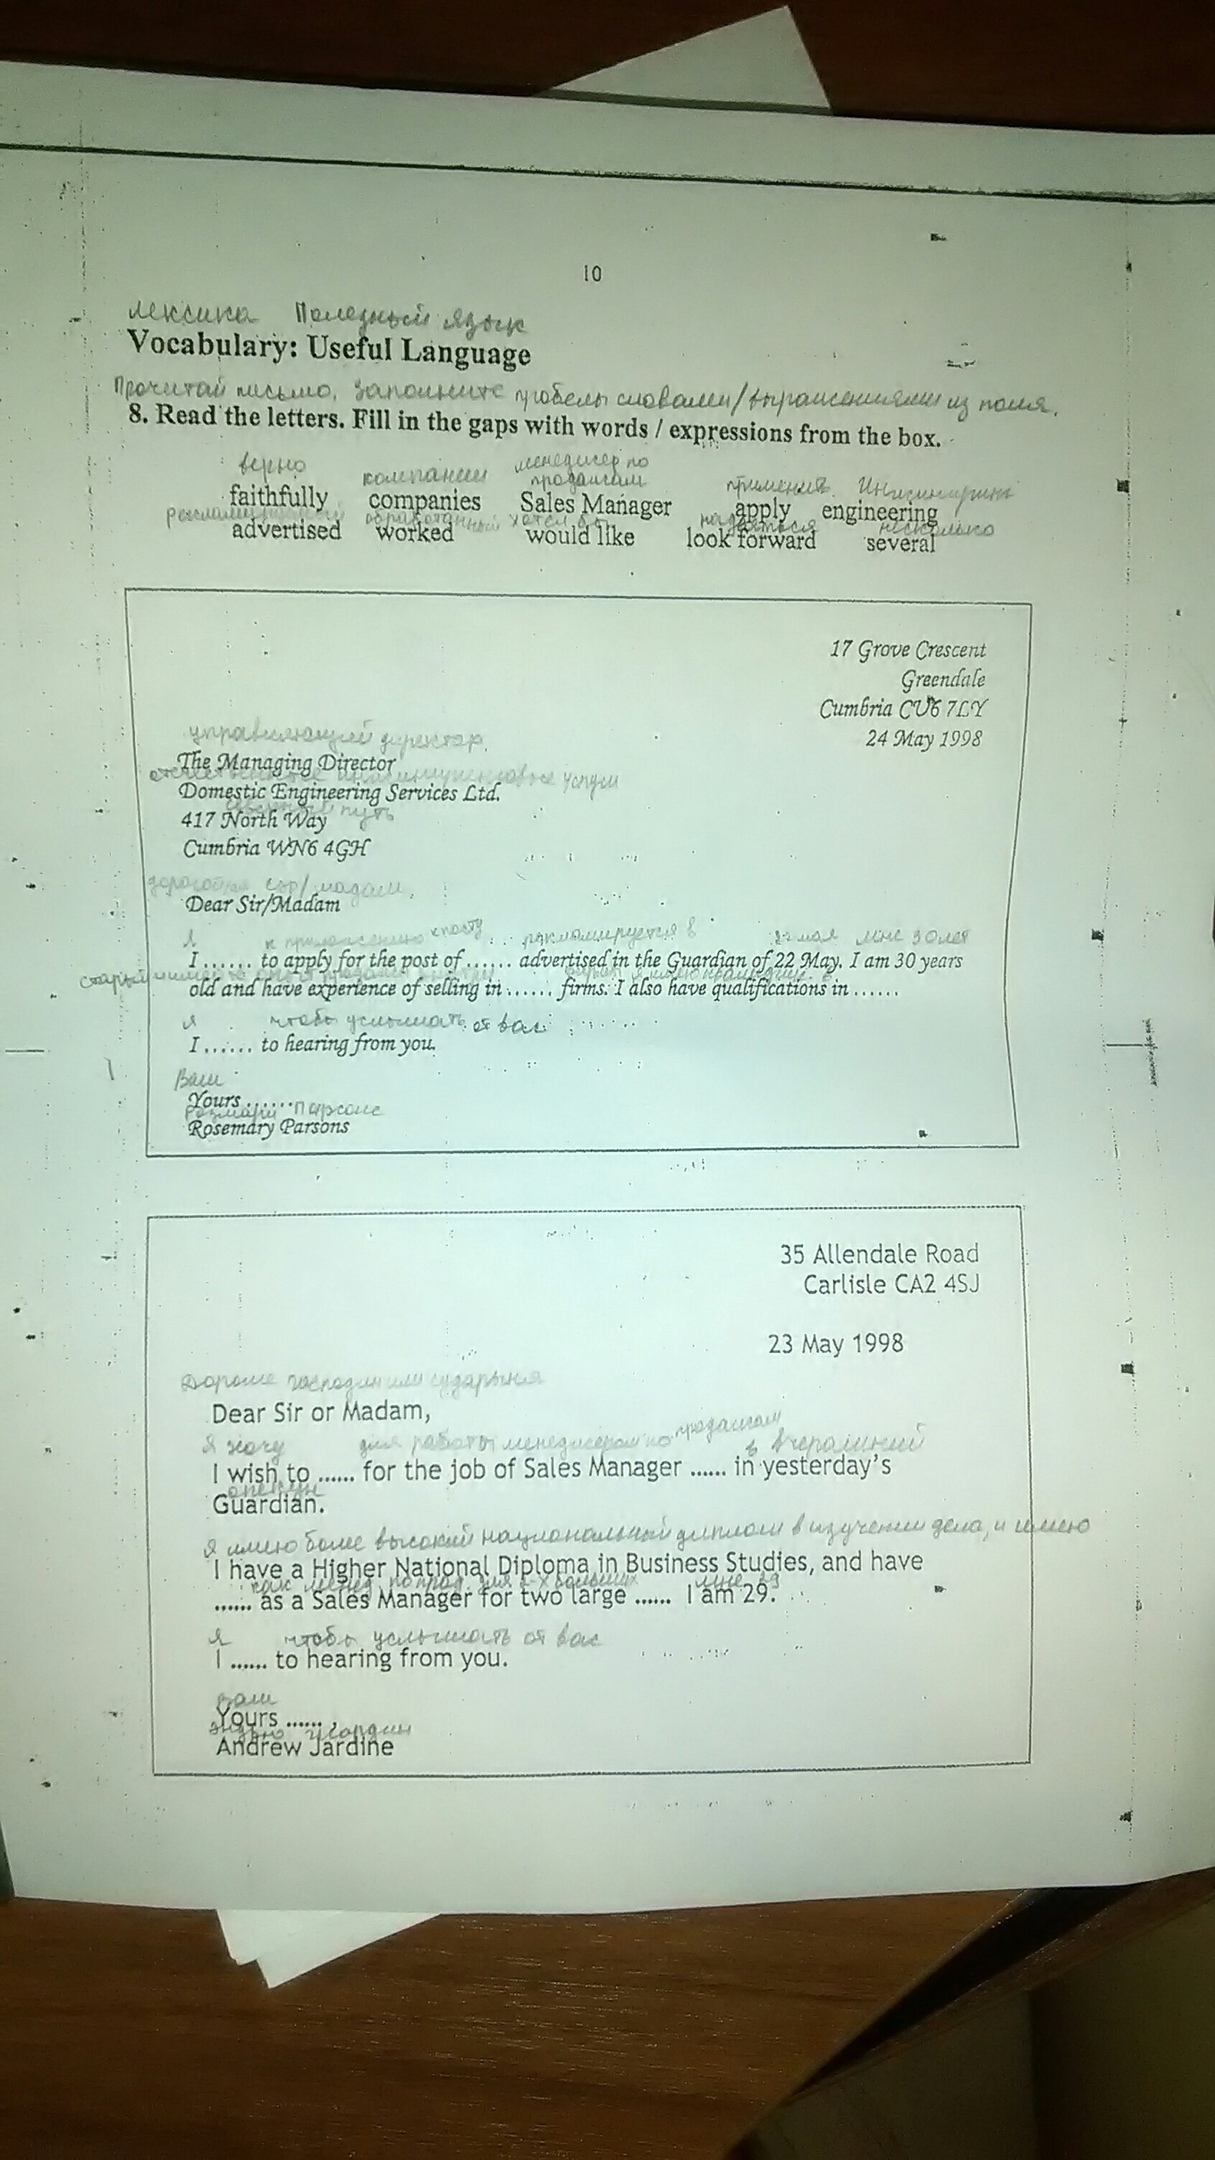 10
лексика Полезный язык
Vocabulary: Useful Language
Прочитай письмо, заполните пробелы словами/выражениями из поля.
8. Read the letters. Fill in the gaps with words / expressions from the box.
верно компании менеджер по продажам применить
faithfully companies Sales Manager apply engineering
хотел бы несколько
advertised worked would like look forward several
17 Grove Crescent
Greendale
Cumbria CU6 7LY
24 May 1998
управляющий директор
The Managing Director
услуги
Domestic Engineering Services Ltd.
путь
417 North Way
Cumbria WN6 4GH
сэр/мадам,
Dear Sir/Madam
Я к приложению к посту рекламируется в 22 мая мне 30 лет
I ...... to apply for the post of ...... advertised in the Guardian of 22 May. I am 30 years
old and have experience of selling in ...... firms. I also have qualifications in ......
я чтобы услышать от вас
I ...... to hearing from you.
Ваш
Yours ......
Розмари Парсонс
Rosemary Parsons
35 Allendale Road
Carlisle CA2 4SJ
23 May 1998
господин или сударыня
Dear Sir or Madam,
Я хочу для работы менеджером по продажам в вчерашний
I wish to ...... for the job of Sales Manager ...... in yesterday's
опекун
Guardian.
Я имею более высокий национальный диплом в изучении дела, и имею
I have a Higher National Diploma in Business Studies, and have
как менед. по прод. для 2-х больших мне 29
...... as a Sales Manager for two large ...... I am 29.
Я чтобы услышать от вас
I ...... to hearing from you.
Ваш
Yours ...... ,
Andrew Jardine